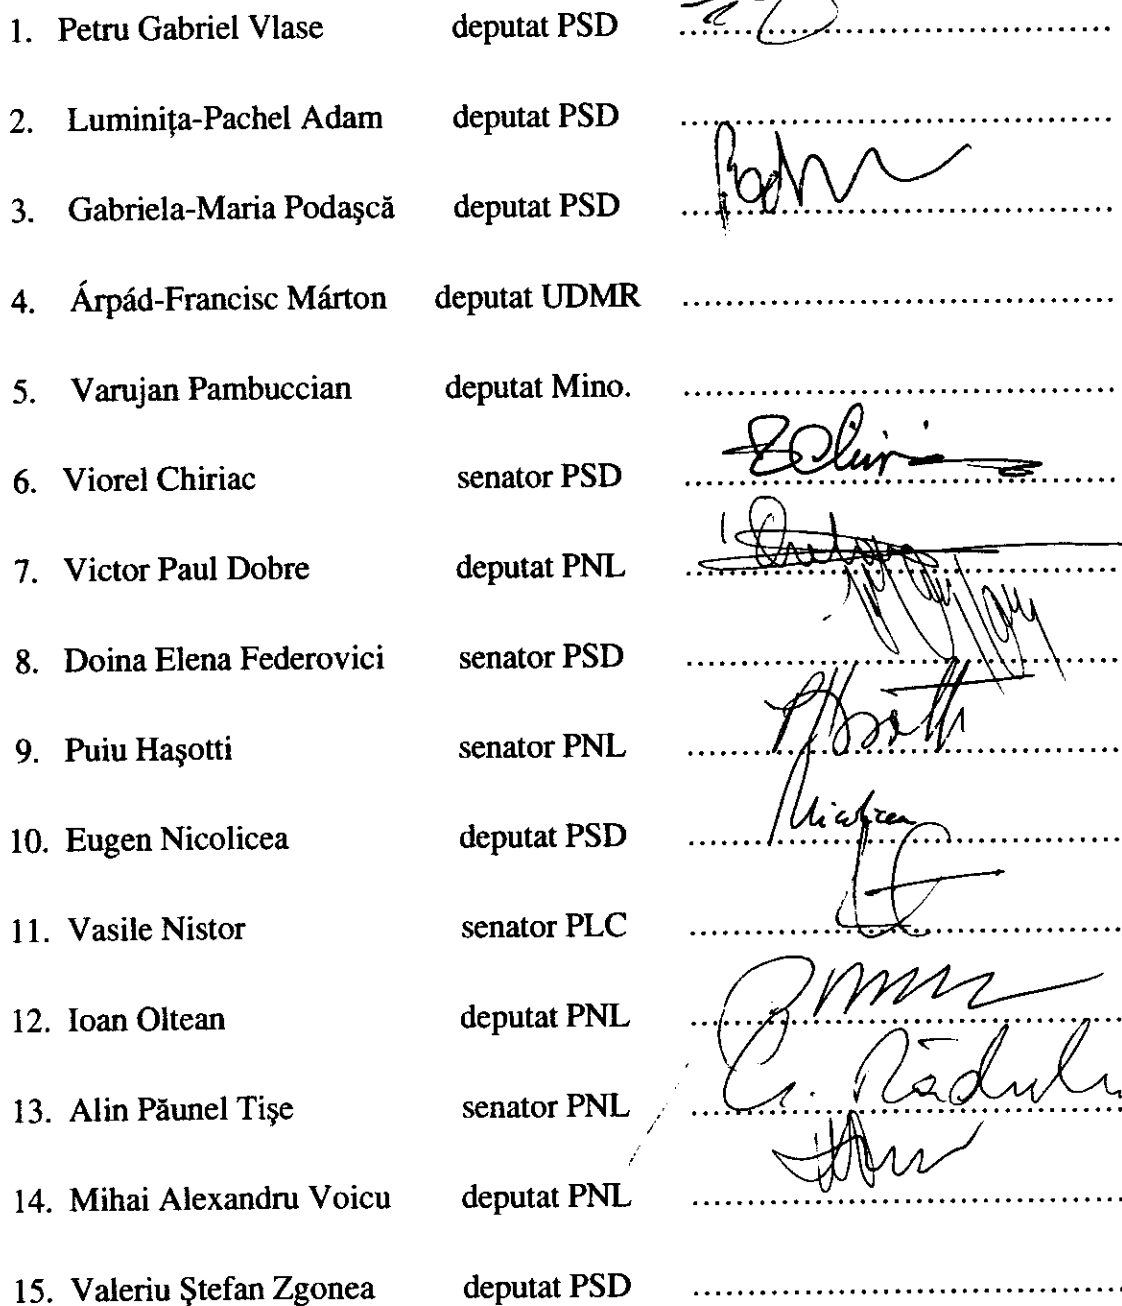 1. Petru Gabriel Vlase deputat PSD ........................................
2. Luminița-Pachel Adam deputat PSD ........................................
3. Gabriela-Maria Podaşcă deputat PSD ........................................
4. Árpád-Francisc Márton deputat UDMR ........................................
5. Varujan Pambuccian deputat Mino. ........................................
6. Viorel Chiriac senator PSD ........................................
7. Victor Paul Dobre deputat PNL ........................................
8. Doina Elena Federovici senator PSD ........................................
9. Puiu Haşotti senator PNL ........................................
10. Eugen Nicolicea deputat PSD ........................................
Nicolicea
11. Vasile Nistor senator PLC ........................................
12. Ioan Oltean deputat PNL ........................................
13. Alin Păunel Tişe senator PNL ........................................
14. Mihai Alexandru Voicu deputat PNL ........................................
15. Valeriu Ştefan Zgonea deputat PSD ........................................